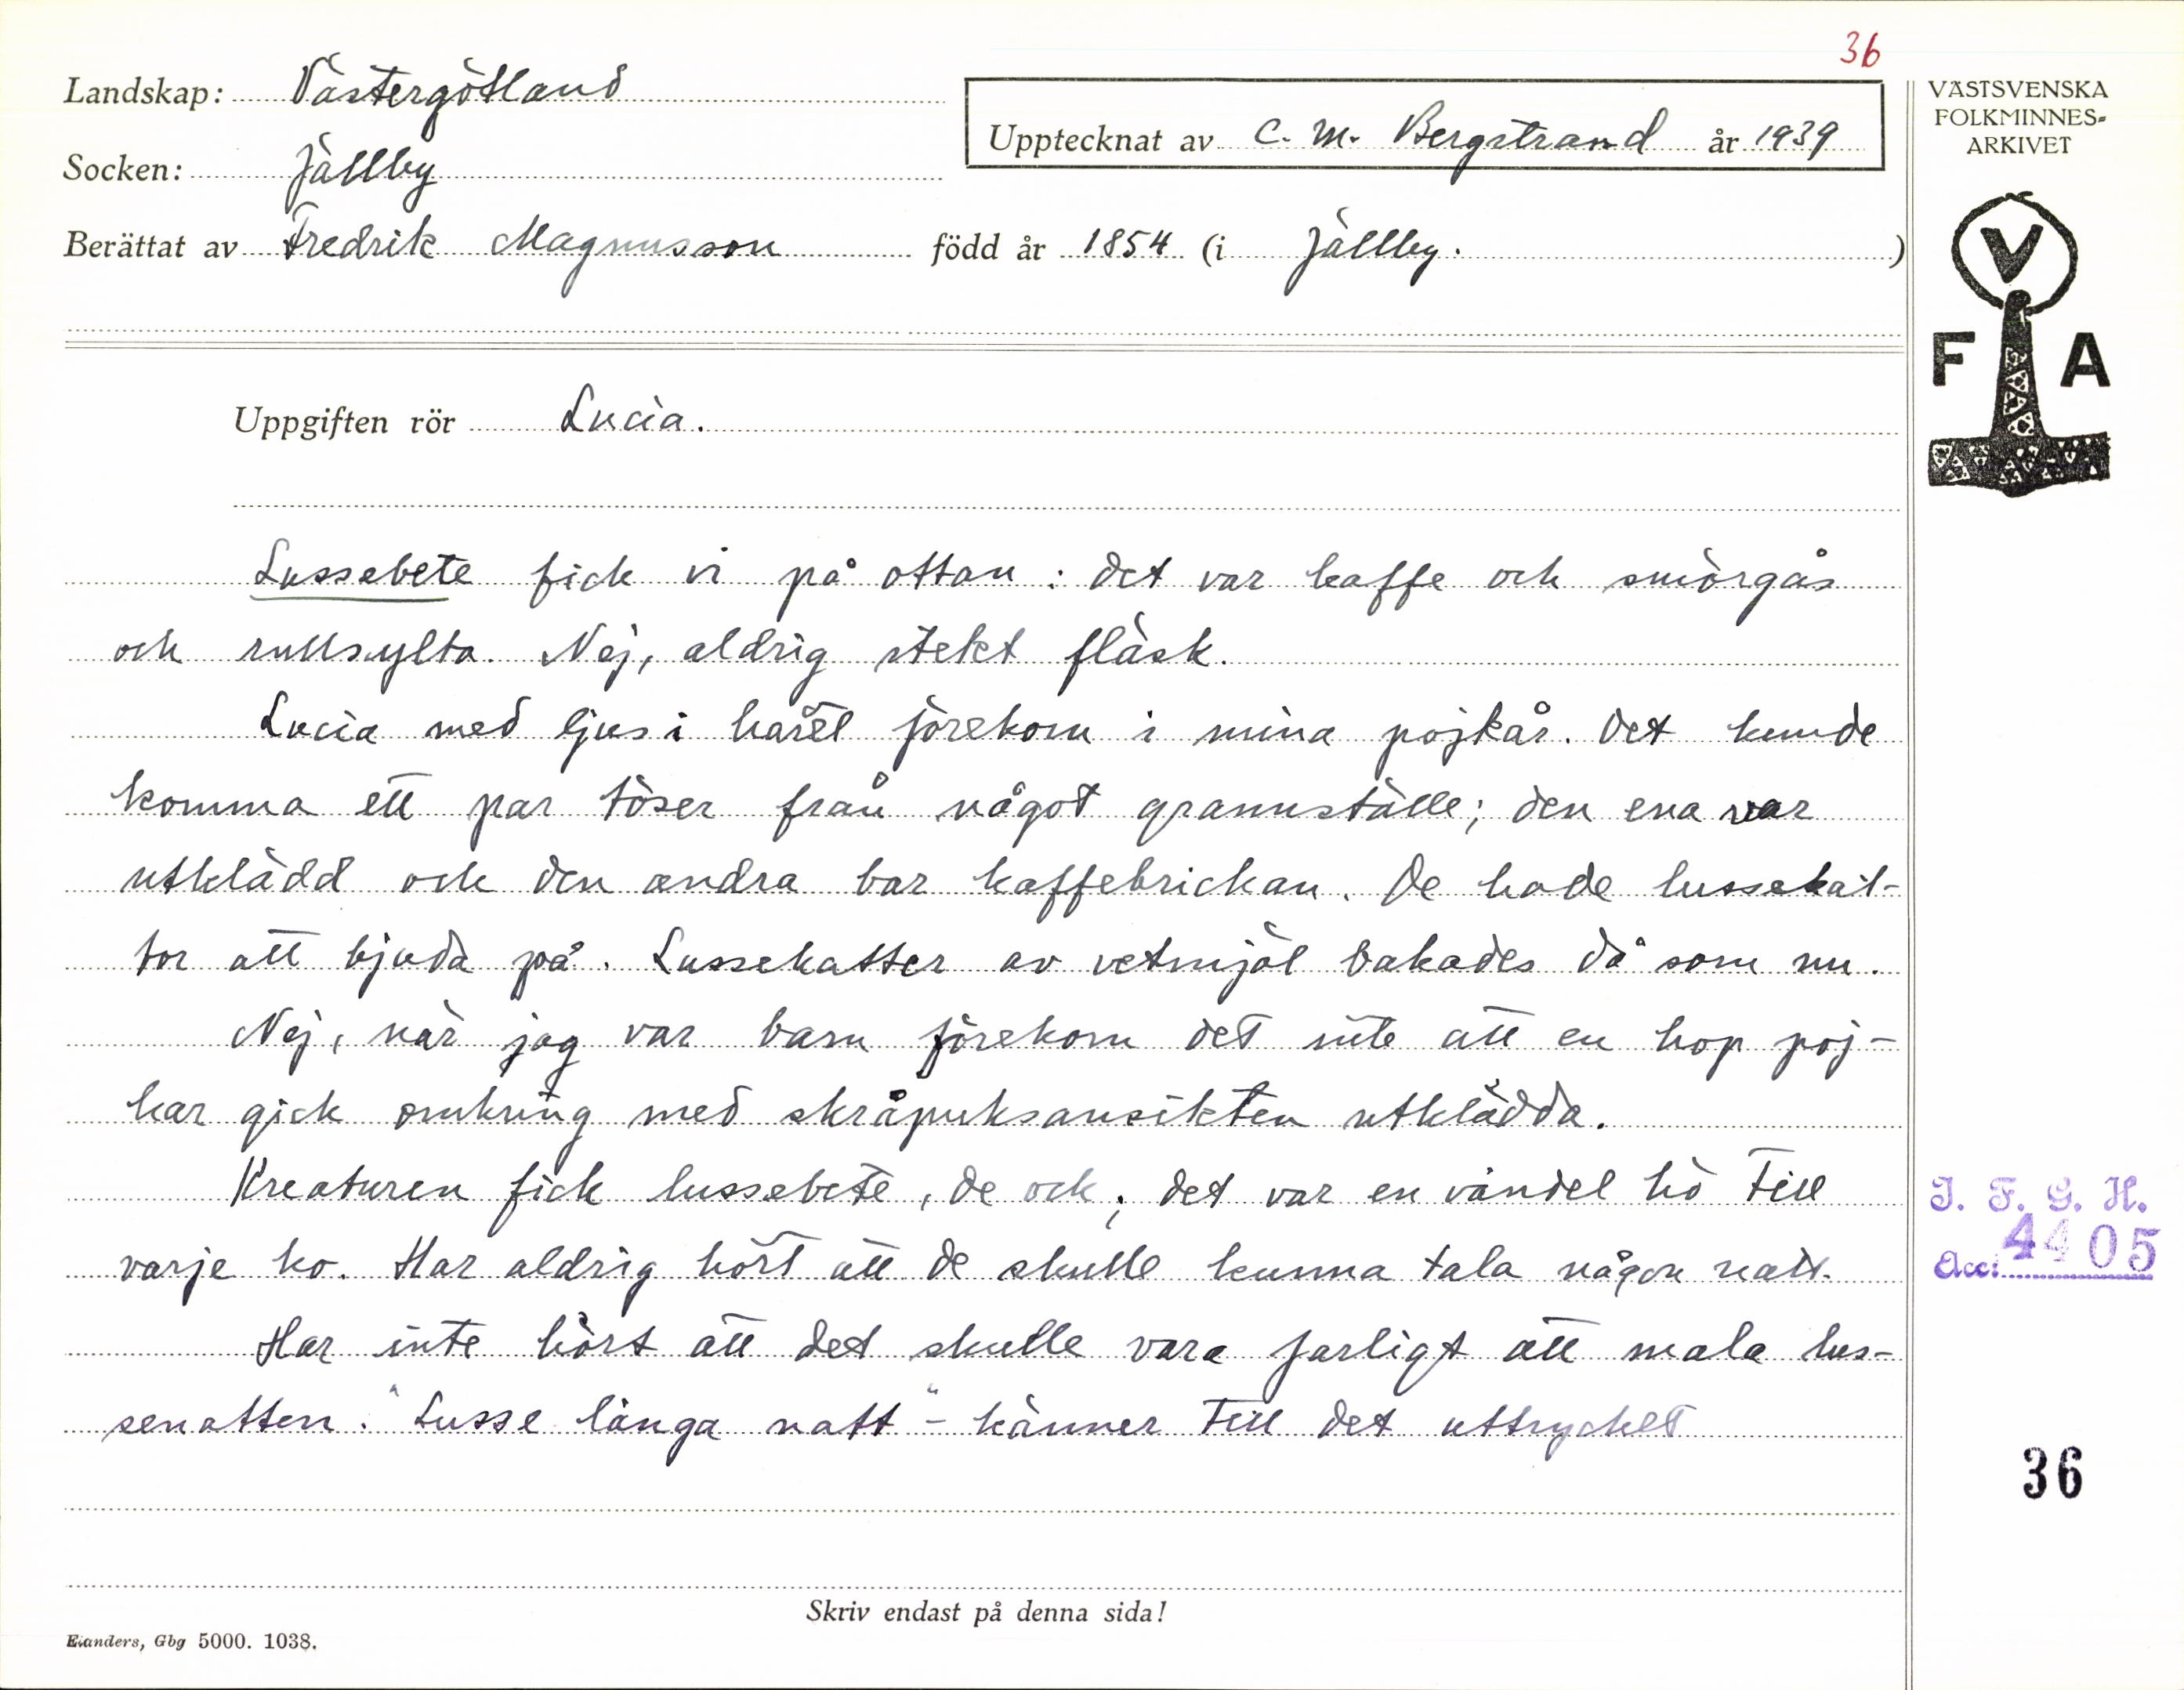 36
Landskap: Västergötland
Upptecknat av C. M. Bergstrand år 1939
VÄSTSVENSKA
FOLKMINNES-
ARKIVET
Socken: Jällby
Berättat av Fredrik Magnusson född år 1854 (i Jällby. )
V
F A
Uppgiften rör Lucia.
Lussebete fick vi på ottan: det var kaffe och smörgås
och rullsylta. Nej, aldrig stekt fläsk.
Lucia med ljus i håret förekom i mina pojkår. Det kunde
komma ett par töser från något grannställe; den ena var
utklädd och den andra bar kaffebrickan. De hade lussekat-
tor att bjuda på. Lussekatter av vetmjöl bakades då som nu.
Nej, när jag var barn förekom det inte att en hop poj-
kar gick omkring med skråpuksansikten utklädda.
Kreaturen fick lussebete, de ock; det var en våndel hö till
varje ko. Har aldrig hört att de skulle kunna tala någon natt.
Har inte hört att det skulle vara farligt att mala lus-
senatten. "Lusse långa natt" - känner till det uttrycket
I. F. G. H.
Acc: 4405
36
Skriv endast på denna sida!
Elanders, Gbg 5000. 1038.